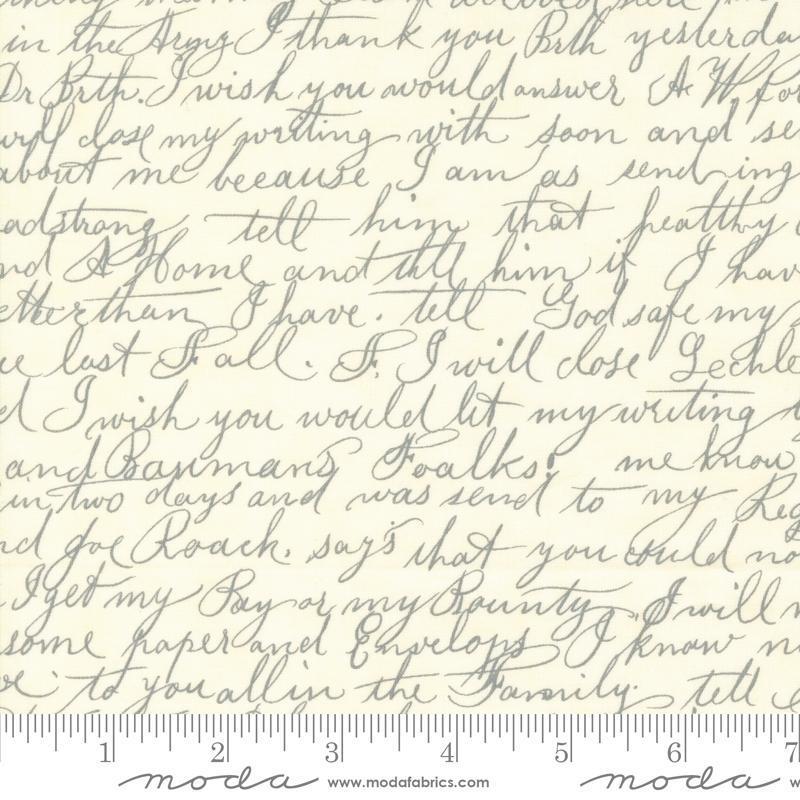 in the Army I thank you Brth yesterda
Dr Brth. I wish you would answer A W. for
will close my writing with soon and se
about me because I am as send ing
adstrong tell him that healthy
nd A Home and tell him if I hav
etter than I have. tell God safe my
ue last Fall. F. I will close Lechle
d I wish you would let my writing
and Baumans Foalks! me know
in two days and was send to my Reg
nd Joe Roack. say's that you could no
I get my Pay or my Bounty, I will
some paper and Envelops I know n
to you all in the Family. tell
1 2 3 4 5 6 7
moda www.modafabrics.com moda w